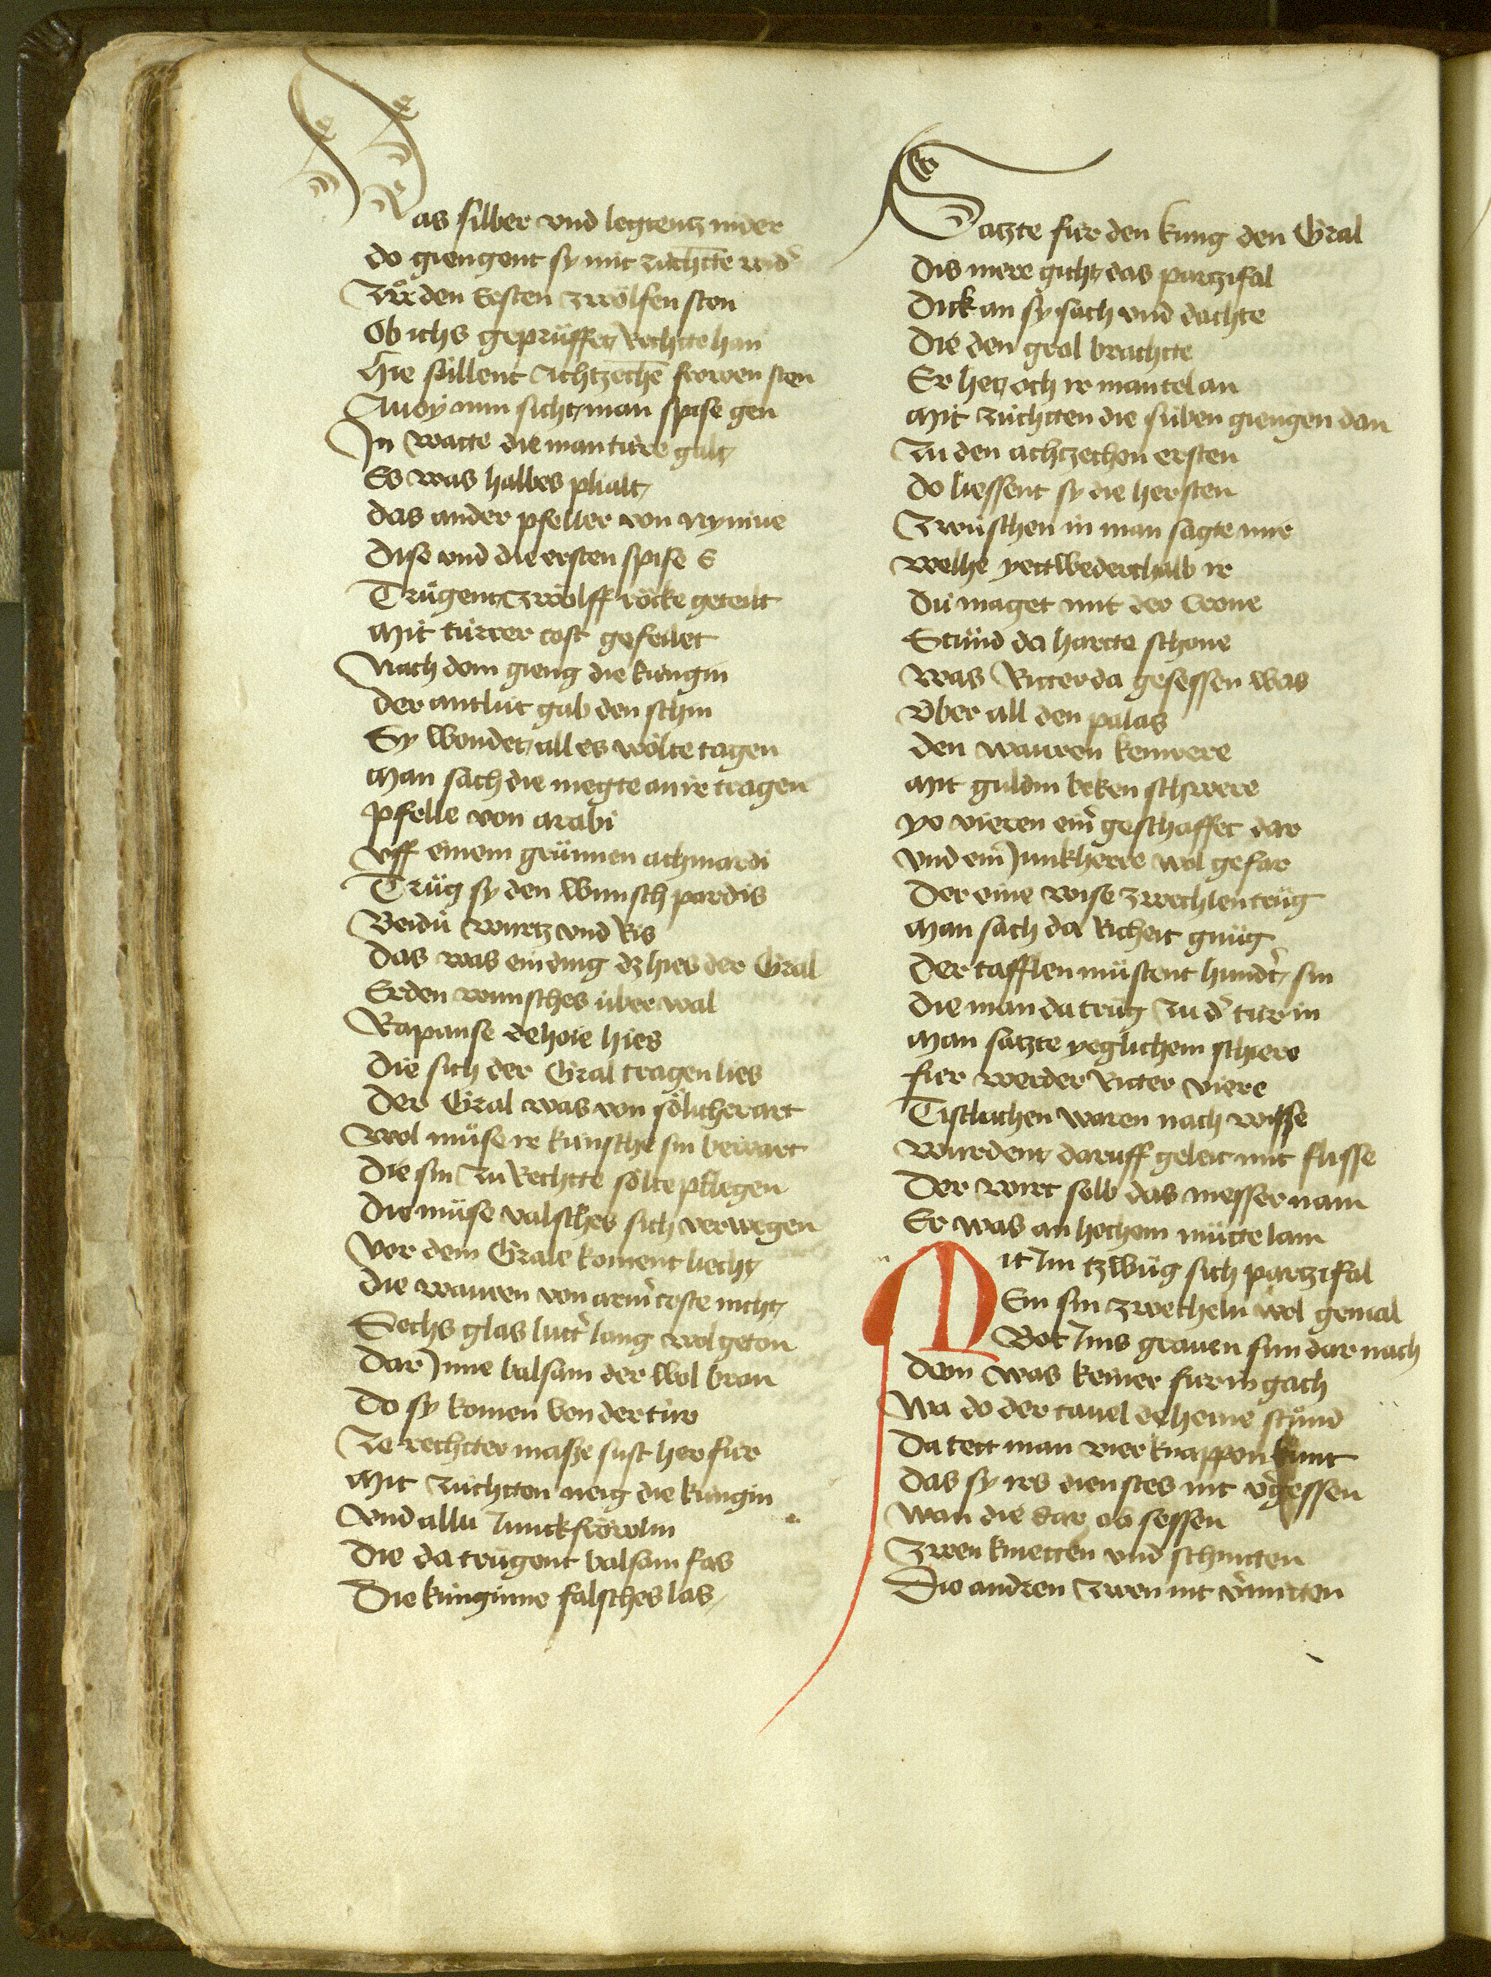 Das silber vnd legtentz nider
do giengent sy mit zuͤchtte wid̕
Zuͦ den Ersten zwoͤlfen sten
Ob ichs gepruͤffet Rechtte han
Hie sullent Achtzechē frowen sten
Auoy nun sicht man spise gen
In watte die man ture galt
Es was halbes plialt
das ander pfeller von nyniue
Dise vnd die ersten spise E
Truͦgent zwoͤlff roͤcke geteilt
Mit turrer cost gefeilet
Nach dem gieng die kungin
der antlut gab den schin
Sy wondet all es woͤlte tagen
Man sach die megte an ir tragen
pfelle von arabi
vff einem gruͤnnen achmardi
Truͦg sy den wunsch pardis
Beidu wurtz vnd Ris
Das was ein ding dz hies der Gral
Erden wunsches uber wal
Rapanse dehoie hies
Die sich der Gral tragen lies
Der Gral was von soͤlicher art
Wol muͤse ir kunsche sin bewart
Die sin zu Rechtte soͤlte pflegen
Die muͤse valsches sich verwegen
Vor dem Grale koment liecht
Die wauren von arm̕ coste nicht
Sechs glas lutt̕ lang wol geton
Dar Inne balsam der wol bran
Do sy komen von der tur
Ze rechtter masse sust her fur
Mit zuchtten neig die kungin
Vnd allu Iunckfroͤwlin
Die da truͦgent balsam fas
Die kunginne falsches las
Satzte fur den kung den Gral
Dis mere gicht das partzifal
Dick an sy sach vnd dachte
Die den gral brachtte
Er het och ir mantel an
Mit zuchtten die suben giengen dan
Zu den achtzechen ersten
Do liessent sy die hersten
Zwuschen in man sagte mir
Welhe yettwederthalb ir
Du maget mit der crone
Stuͦnd da hartte schone
Was Ritter da gesessen was
Vber all den palas
den wauren kemrere
Mit guldin beken schwere
ye vieren ein̕ geschaffet dar
Vnd ein Iunkherre wol gefar
Der eine wise zwechlen truͦg
Man sach da Richeit gnuͦg
Der tafflen muͤstent hund̕t sin
Die man da truͦg zu d̕ tur in
Man satzte yeglichem schiere
fur werder Ritter viere
Tischlachen waren nach wisse
Wurdent daruff geleit mit flisse
Der wirt selb das messer nam
Er was an hochem muͦtte lam
Mit Im tzwuͦg sich partzifal
Ein sin zwecheln wol gemal
Bot Ims grauen sun dar nach
Dem was keiner fur in gach
Wa do der tauel deheine stuͦnd
Da tett man vier knappen kunt
Das sy irs dienstes nit v̕gessen
Wan die dar ob sessen
Zwen knietten vnd schnitten
Die andren zwen nit v̕mitten